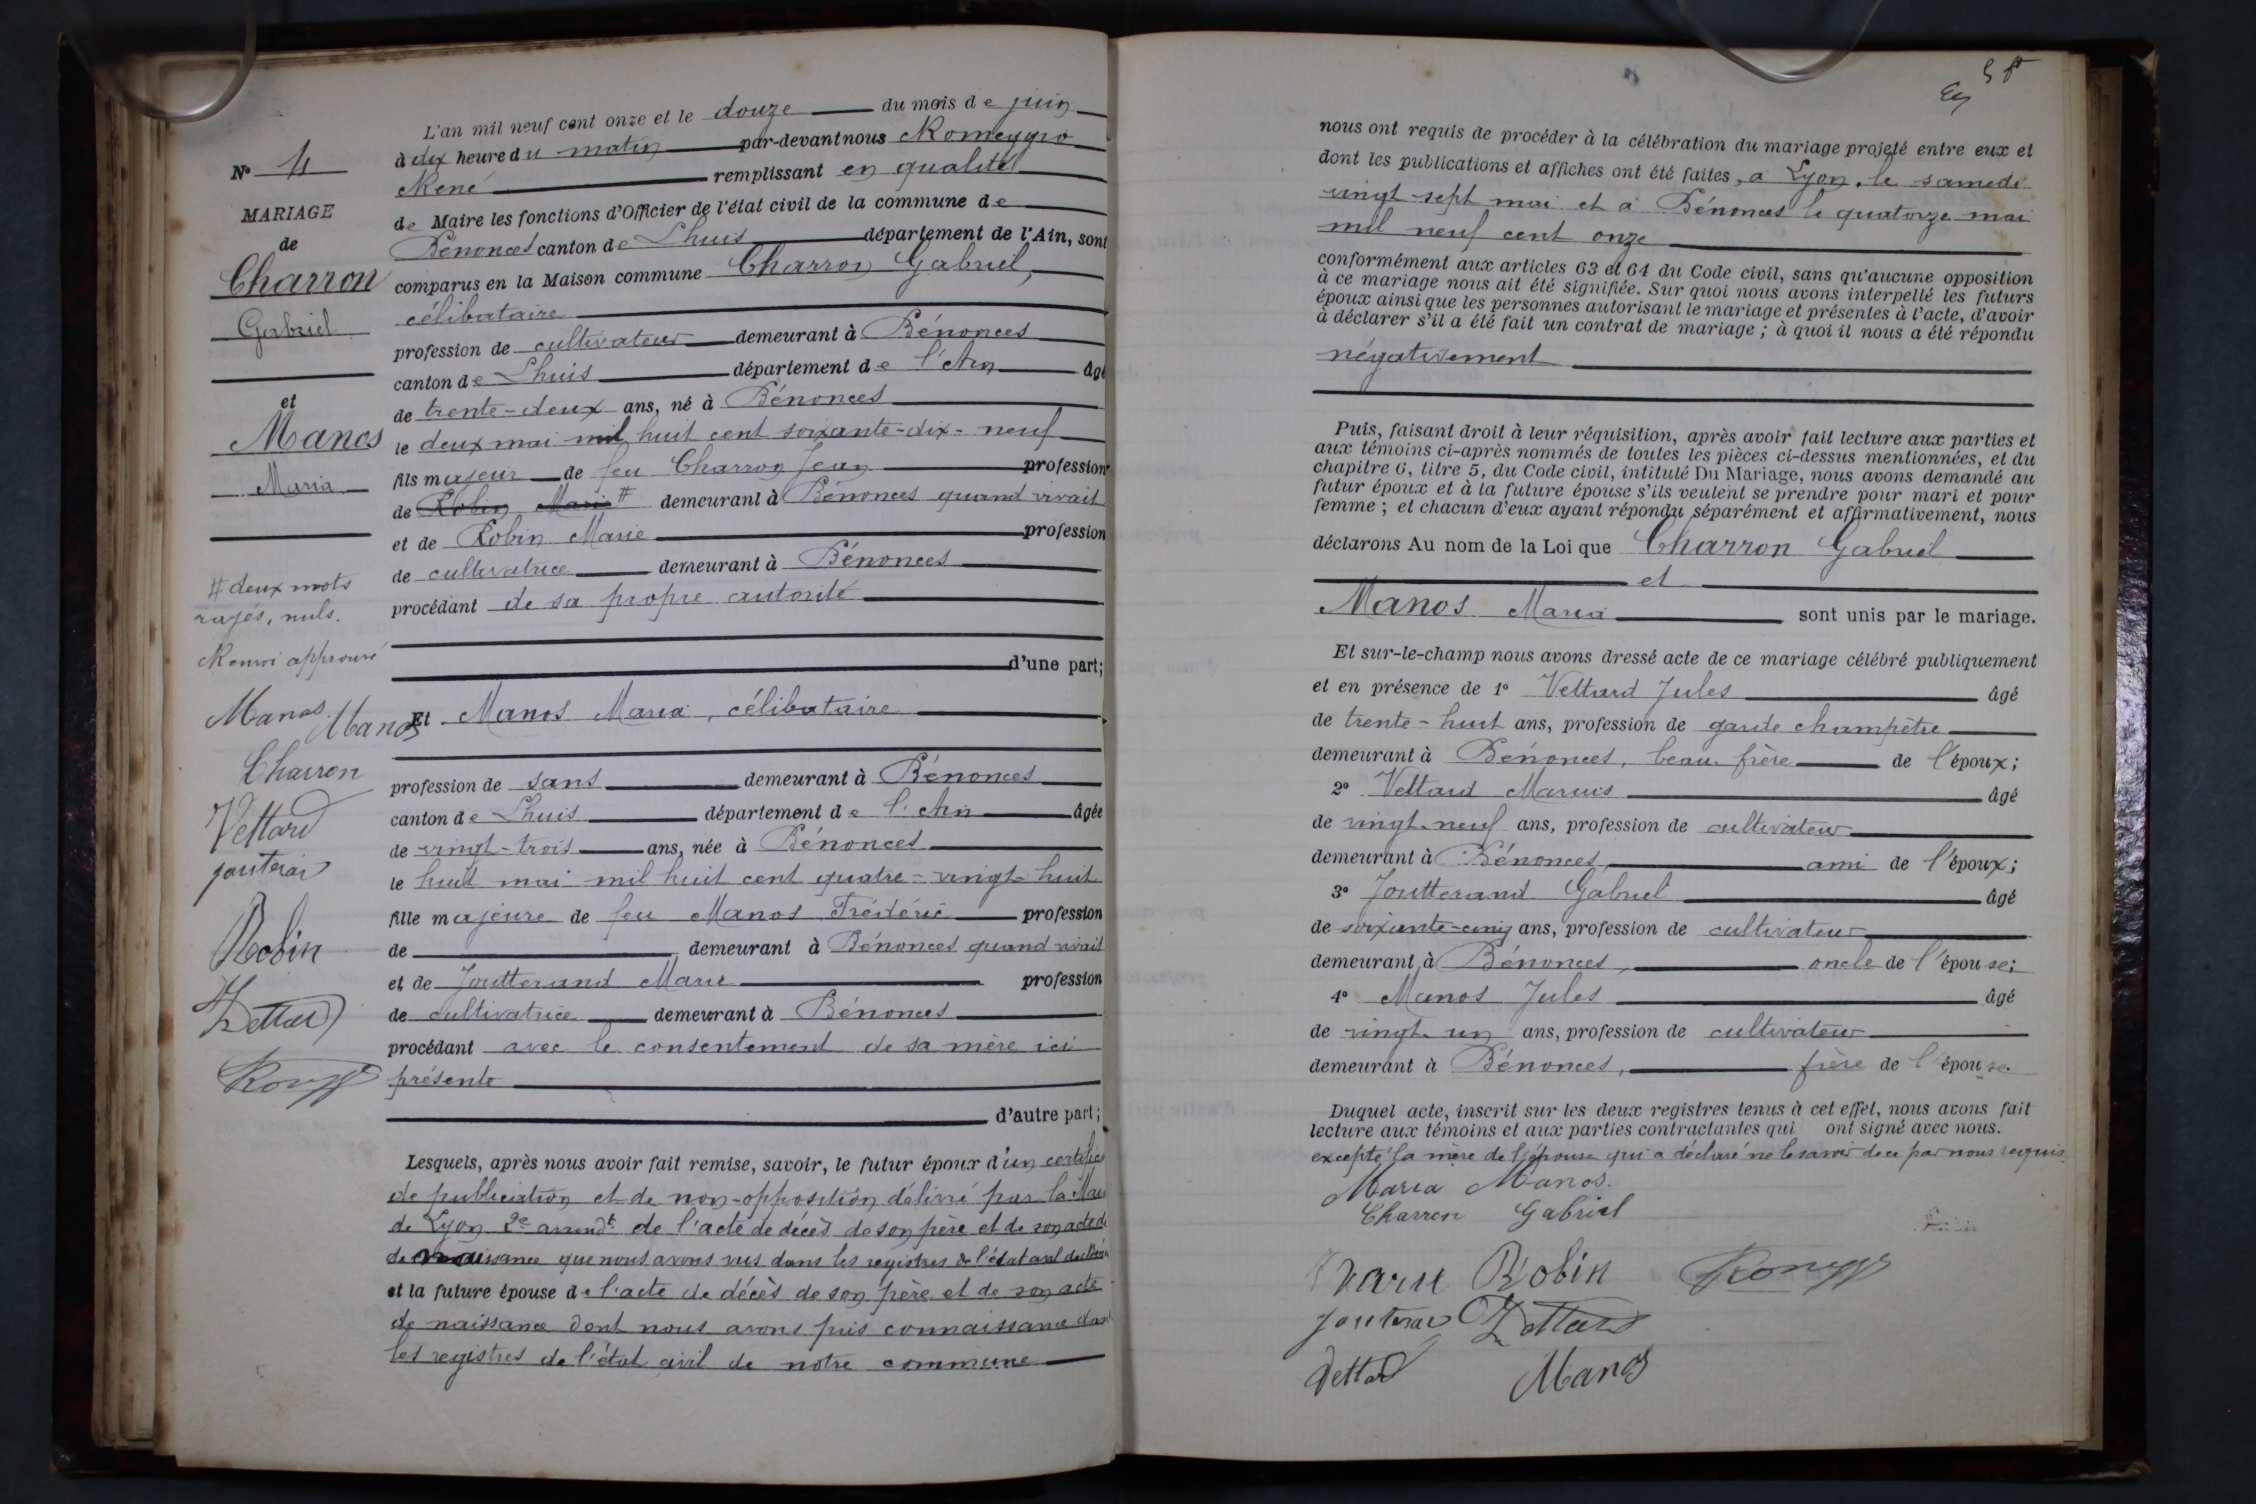 N° 4
MARIAGE
de
Charron
Gabriel
et
Manos
Maria
# deux mots
rayés, nuls.
Renvoi approuvé
Manos Manos
Charron
Vettard
Robin
L'an mil neuf cent onze et le douze du mois de juin
à dix heure du matin par-devant nous
René remplissant en qualité
de Maire les fonctions d'Officier de l'état civil de la commune de
Bénonces canton de Lhuis département de l'Ain, sont
comparus en la Maison commune Charron Gabriel,
célibataire
profession de cultivateur demeurant à Bénonces
canton de Lhuis département de l'Ain âgé
de trente-deux ans, né à Bénonces
le deux mai mil huit cent soixante-dix-neuf
fils majeur de feu Charron Jean profession
de Robin Marie # demeurant à Bénonces quand vivait
et de Robin Marie profession
de cultivatrice demeurant à Bénonces
procédant de sa propre autorité
d'une part;
Et Manos Maria, célibataire
profession de sans demeurant à Bénonces
canton de Lhuis département de l'Ain âgée
de vingt-trois ans, née à Bénonces
le huit mai mil huit cent quatre-vingt-huit
fille majeure de feu Manos Frédéric profession
de demeurant à Bénonces quand vivait
et de Joutterand Marie profession
de cultivatrice demeurant à Bénonces
procédant avec le consentement de sa mère ici
présente
d'autre part;
Lesquels, après nous avoir fait remise, savoir, le futur époux d'un
de publication et de non-opposition délivré par la
de Lyon de l'acte de décès de son père et de son acte de
de naissance que nous avons vus dans les registres de l'état civil de
et la future épouse de l'acte de décès de son père et de son acte
de naissance dont nous avons pris connaissance dans
les registres de l'état civil de notre commune
nous ont requis de procéder à la célébration du mariage projeté entre eux et
dont les publications et affiches ont été faites, à Lyon, le samedi
vingt-sept mai et à Bénonces le quatorze mai
mil neuf cent onze
conformément aux articles 63 et 64 du Code civil, sans qu'aucune opposition
à ce mariage nous ait été signifiée. Sur quoi nous avons interpellé les futurs
époux ainsi que les personnes autorisant le mariage et présentes à l'acte, d'avoir
à déclarer s'il a été fait un contrat de mariage; à quoi il nous a été répondu
négativement
Puis, faisant droit à leur réquisition, après avoir fait lecture aux parties et
aux témoins ci-après nommés de toutes les pièces ci-dessus mentionnées, et du
chapitre 6, titre 5, du Code civil, intitulé Du Mariage, nous avons demandé au
futur époux et à la future épouse s'ils veulent se prendre pour mari et pour
femme; et chacun d'eux ayant répondu séparément et affirmativement, nous
déclarons Au nom de la Loi que Charron Gabriel
et
Manos Maria sont unis par le mariage.
Et sur-le-champ nous avons dressé acte de ce mariage célébré publiquement
et en présence de 1° Vettard Jules âgé
de trente-huit ans, profession de garde champêtre
demeurant à Bénonces, beau-frère de l'époux;
2° Vettard Marius âgé
de vingt-neuf ans, profession de cultivateur
demeurant à Bénonces ami de l'époux;
3° Joutterand Gabriel âgé
de soixante-cinq ans, profession de cultivateur
demeurant à Bénonces, oncle de l'épouse;
4° Manos Jules âgé
de vingt-un ans, profession de cultivateur
demeurant à Bénonces, frère de l'épouse.
Duquel acte, inscrit sur les deux registres tenus à cet effet, nous avons fait
lecture aux témoins et aux parties contractantes qui ont signé avec nous.
excepté la mère de l'épouse qui a déclaré ne le savoir de ce par nous requis.
Maria Manos.
Charron Gabriel
Robin
Vettard
Manos